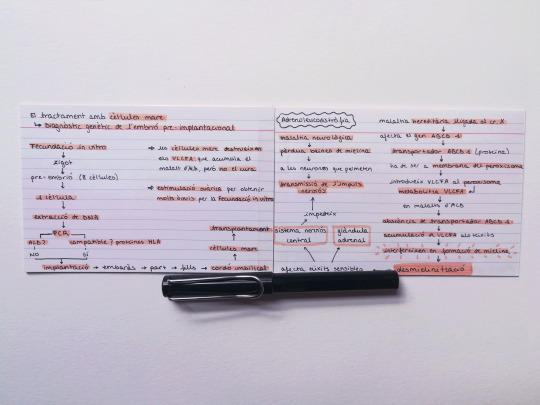 El tractament amb cèl·lules mare
↳ Diagnòstic genètic de l'embrió pre-implantacional
Fecundació in vitro
↓
zigot
↓
pre-embrió (8 cèl·lules)
↓
1 cèl·lula
↓
extracció de DNA
↓
PCR
ALD? compatible? proteïnes HLA
NO SÍ
implantació → embaràs → part → fills → cordó umbilical
cèl·lules mare
transplantament
→ les cèl·lules mare destrueixen
els VLCFA que acumula el
malalt d'ALD, però no el cura
→ estimulació ovàrica per obtenir
molts òvuls per la Fecundació in vitro
Adrenoleucodistròfia
malaltia neurològica
↓
pèrdua beines de mielina
↓
a les neurones que permeten
↓
transmissió de l'impuls
nerviós
impedeix
sistema nerviós
central
glàndula
adrenal
afecta teixits sensibles
malaltia hereditària lligada al cr. X
↓
afecta el gen ABCD 1
↓
transportador ABCD 1 (proteïna)
↓
ha de ser a membrana del peroxisoma
↓
introdueix VLCFA al peroxisoma
metabolitza VLCFA
↓
en malalts d'ALD
↓
absència de transportador ABCD 1
↓
acumulació de VLCFA als teixits
↓
interfereixen en formació de mielina
↓
desmielinització